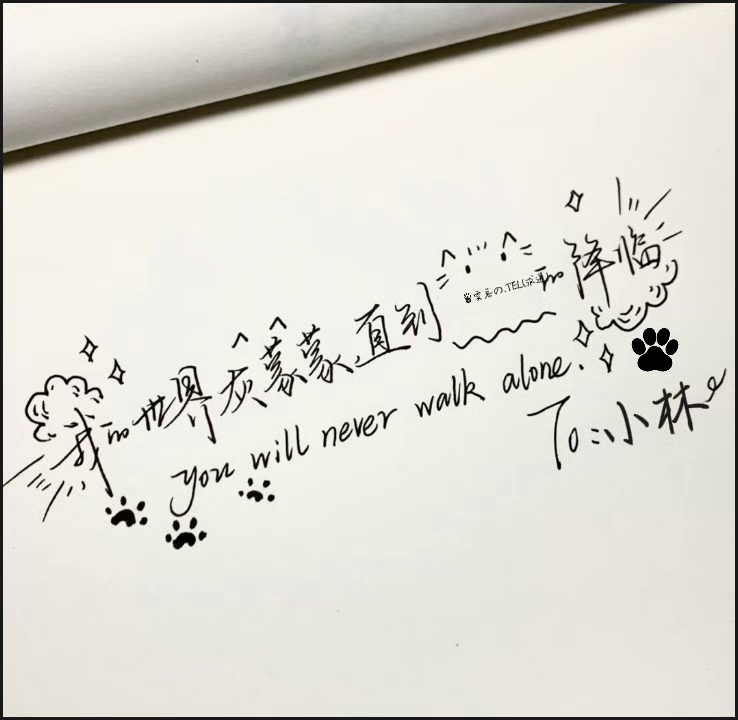 我の世界灰蒙蒙,直到の降临
you will never walk alone.
To:小林